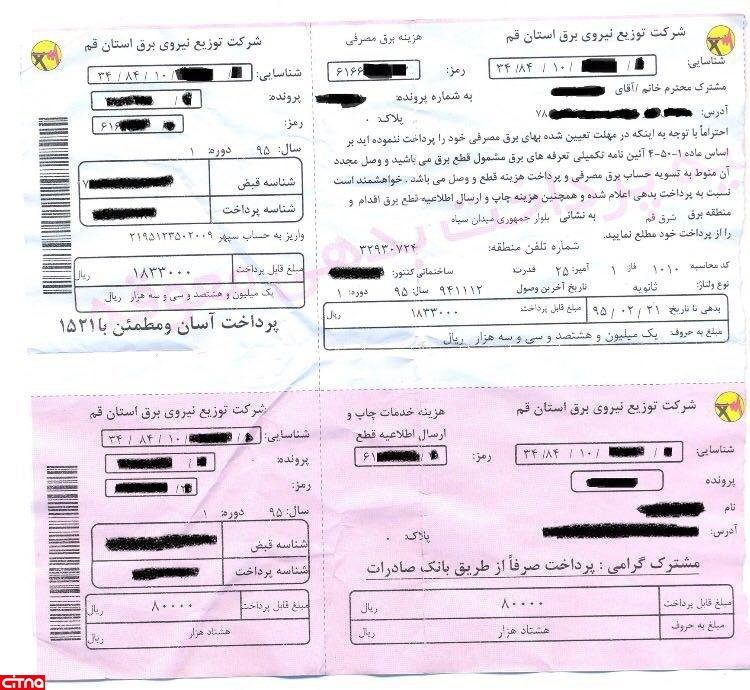 شرکت توزیع نیروی برق استان قم
هزینه برق مصرفی
شناسایی: ۳۴/۸۴/۱۰/
رمز: ۶۱۶۶
مشترک محترم خانم /آقای
به شماره پرونده:
آدرس: ۷۸
پلاک: ۰
احتراماً با توجه به اینکه در مهلت تعیین شده بهای برق مصرفی خود را پرداخت ننموده اید بر
اساس ماده ۱-۵۰-۴ آئین نامه تکمیلی تعرفه های برق مشمول قطع برق می باشید و وصل مجدد
آن منوط به تسویه حساب برق مصرفی و پرداخت هزینه قطع و وصل می باشد . خواهشمند است
نسبت به پرداخت بدهی اعلام شده و همچنین هزینه چاپ و ارسال اطلاعیه قطع برق اقدام و
منطقه برق شرق قم به نشانی بلوار جمهوری میدان سپاه
را از پرداخت خود مطلع نمایید.
شماره تلفن منطقه: ۳۲۹۳۰۷۲۴
کد محاسبه: ۱۰۱۰ فاز: ۱ آمپر: ۲۵ قدرت ساختمانی کنتور:
نوع ولتاژ: ثانویه تاریخ آخرین وصول ۹۴۱۱۱۲ سال: ۹۵ دوره: ۱
بدهی تا تاریخ: ۹۵/۰۲/۲۱ مبلغ قابل پرداخت ۱۸۳۳۰۰۰ ریال
مبلغ به حروف: یک میلیون و هشتصد و سی و سه هزار ریال
شرکت توزیع نیروی برق استان قم
شناسایی: ۳۴/۸۴/۱۰/
پرونده:
رمز: ۶۱۶
سال: ۹۵ دوره: ۱
شناسه قبض ۷
شناسه پرداخت
واریز به حساب سپهر ۲۱۹۵۱۲۳۵۰۲۰۰۹
مبلغ قابل پرداخت ۱۸۳۳۰۰۰ ریال
یک میلیون و هشتصد و سی و سه هزار ریال
پرداخت آسان ومطمئن با ۱۵۲۱
شرکت توزیع نیروی برق استان قم
هزینه خدمات چاپ و
ارسال اطلاعیه قطع
شناسایی: ۳۴/۸۴/۱۰/
رمز: ۶۱
پرونده
نام
آدرس:
پلاک: ۰
مشترک گرامی : پرداخت صرفاً از طریق بانک صادرات
مبلغ قابل پرداخت ۸۰۰۰۰ ریال
مبلغ به حروف هشتاد هزار ریال
شرکت توزیع نیروی برق استان قم
شناسایی: ۳۴/۸۴/۱۰/
پرونده:
رمز:
سال: ۹۵ دوره: ۱
شناسه قبض
شناسه پرداخت
مبلغ قابل پرداخت ۸۰۰۰۰ ریال
هشتاد هزار ریال
CITNA